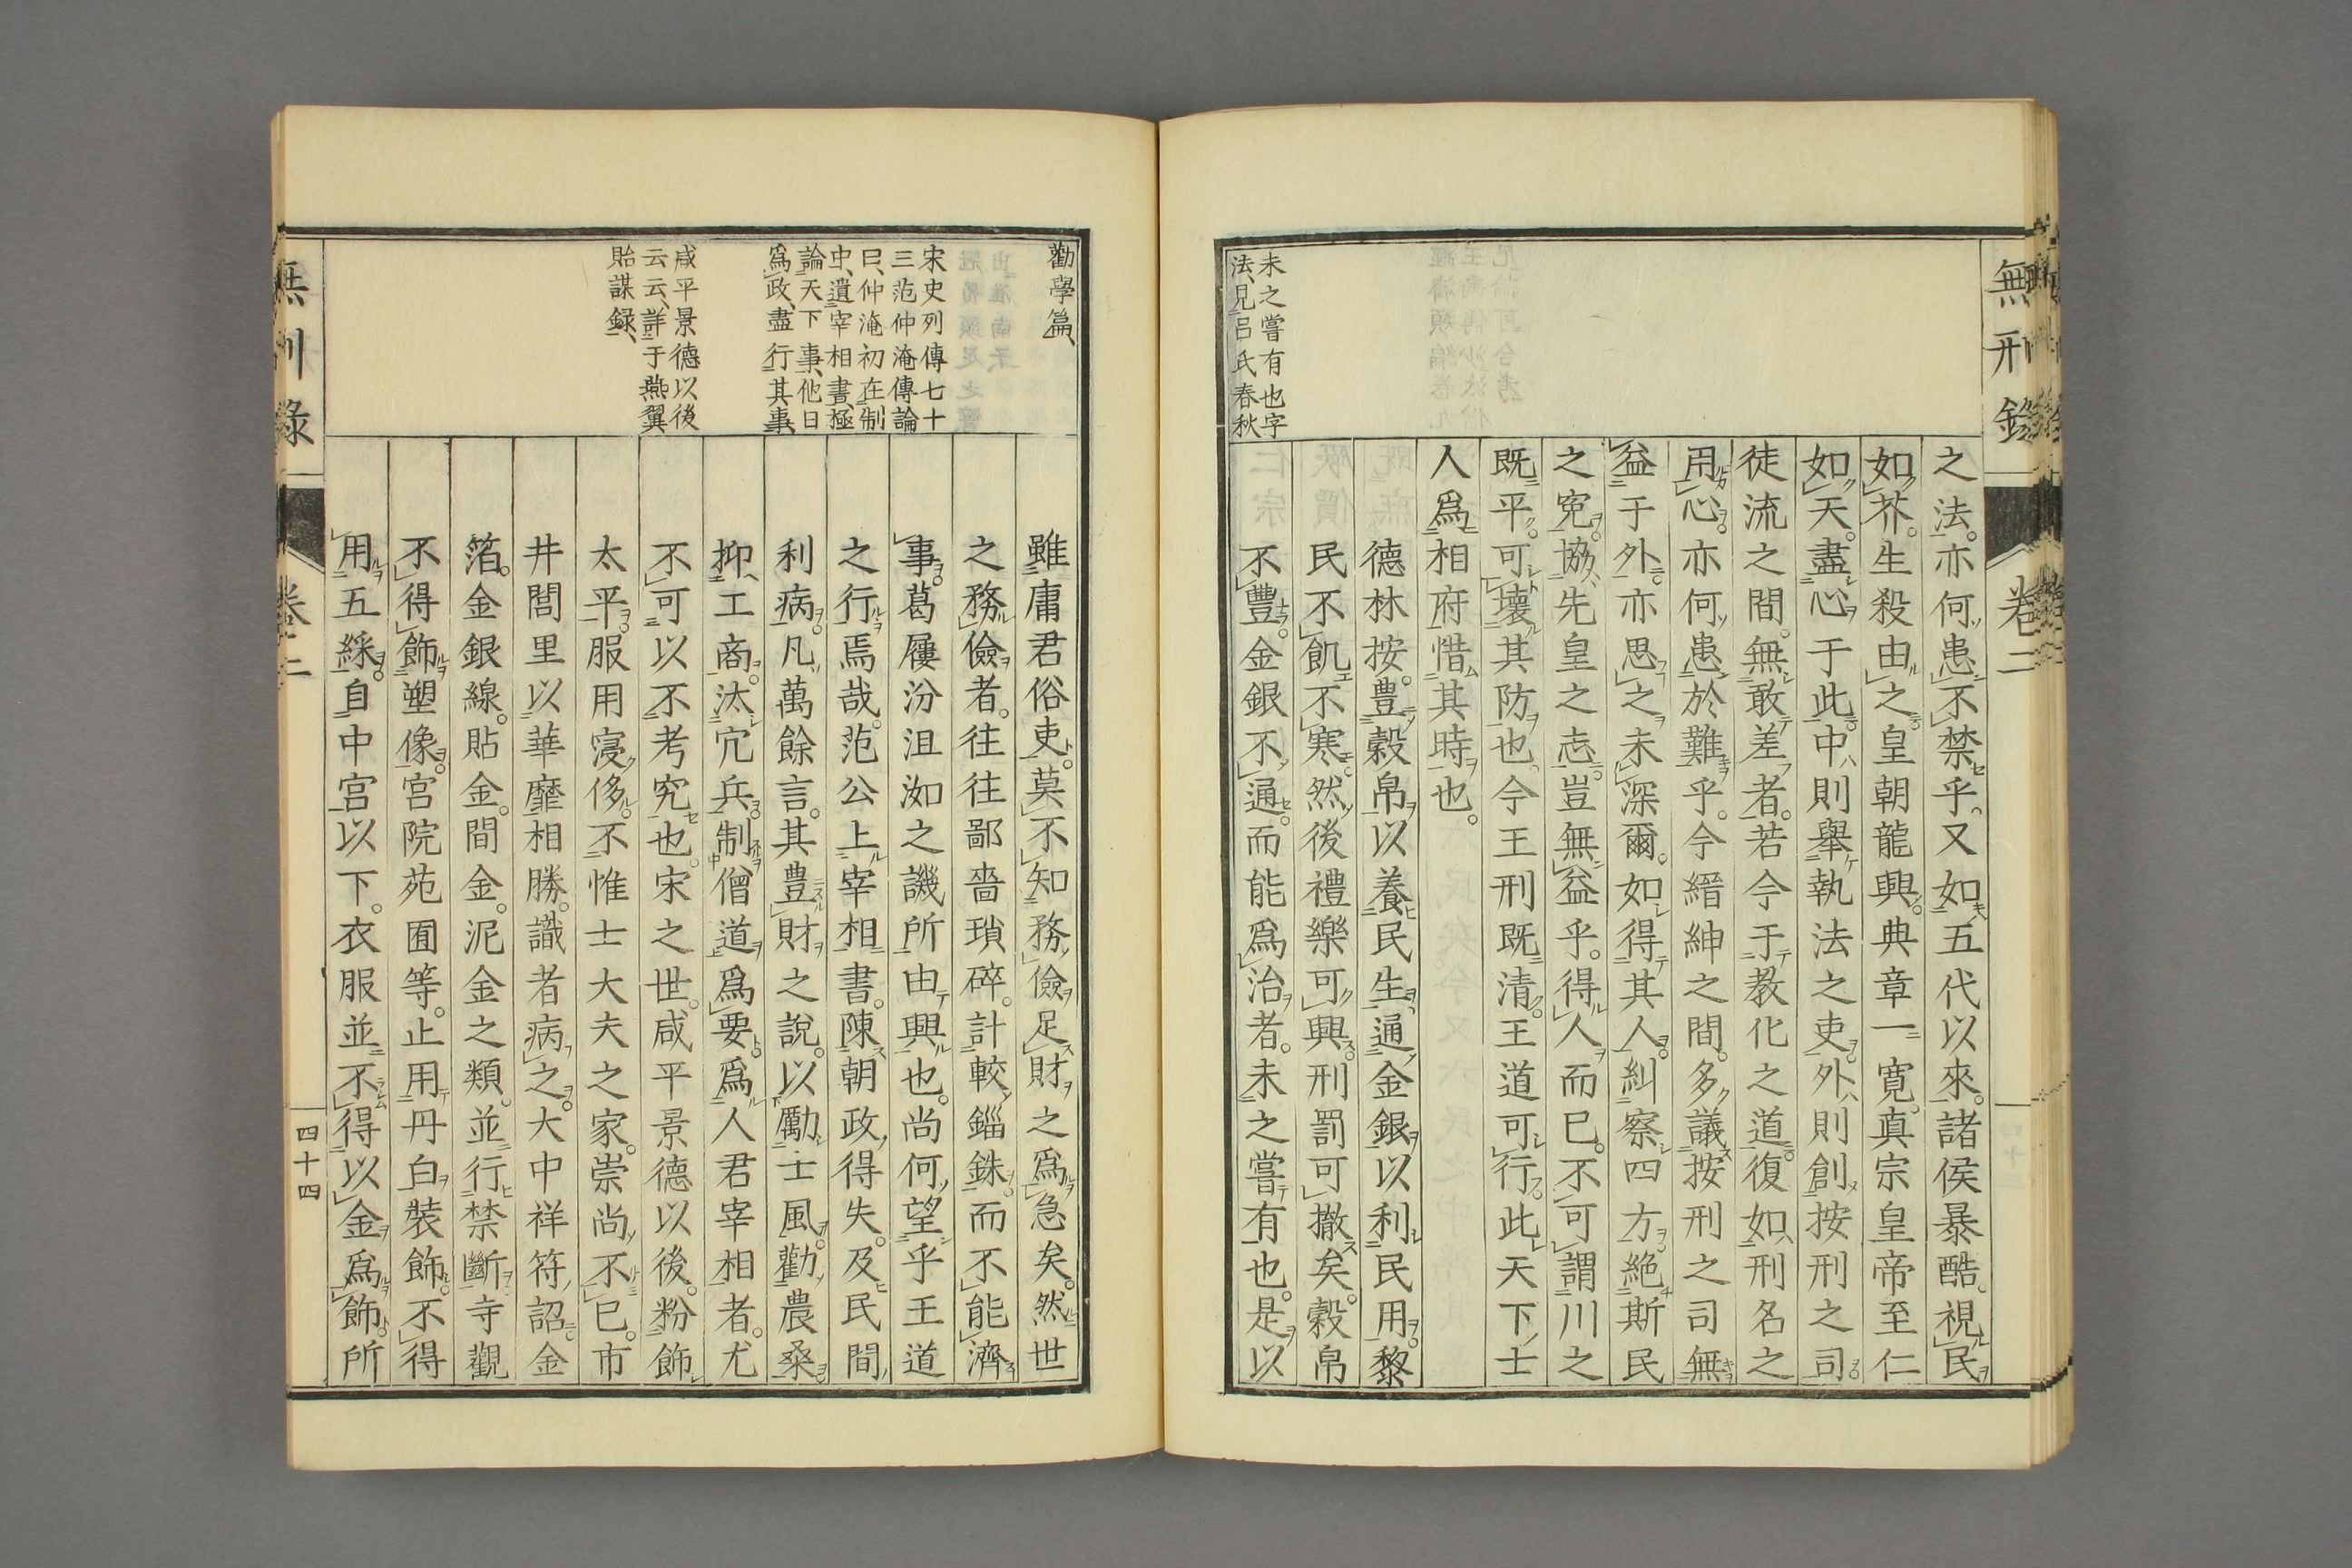 無刑錄
卷二
未之嘗有也字
法、見呂氏春秋
之法。亦何患不禁乎。又如五代以來。諸侯暴酷。視民
如芥。生殺由之。皇朝龍興。典章一寬。真宗皇帝至仁
如天。盡心于此。中則舉執法之吏。外則創按刑之司。
徒流之間。無敢差者。若今于教化之道。復如刑名之
用心。亦何患於難乎。今縉紳之間。多議按刑之司無
益于外。亦思之未深爾。如得其人。糾察四方。絶斯民
之寃。協先皇之志。豈無益乎。得人而已。不可謂川之
既平。可壞其防也。今王刑既清。王道可行。此天下士
人爲相府惜其時也。
德林按。豊穀帛以養民生、通金銀以利民用。黎
民不飢不寒。然後禮樂可興。刑罰可撤矣。穀帛
不豊。金銀不通。而能爲治者。未之嘗有也。是以
勸學篇、
宋史列傳七十
三范仲淹傳論
曰、仲淹初在制
中、遺宰相書極
論天下事、他日
爲政、盡行其事、
咸平景德以後
云云、詳于燕翼
貽謀録、
雖庸君俗吏。莫不知務儉足財之爲急矣。然世
之務儉者。往往鄙嗇瑣碎。計較錙銖。而不能濟
事。葛屨汾沮洳之譏所由興也。尚何望乎王道
之行焉哉。范公上宰相書。陳朝政得失。及民間
利病。凡萬餘言。其豊財之說。以勵士風。勸農桑
抑工商。汰冗兵。制僧道爲要。爲人君宰相者。尤
不可以不考究也。宋之世。咸平景德以後。粉飾
太平。服用寖侈。不惟士大夫之家。崇尚不已。市
井閭里以華靡相勝。識者病之。大中祥符詔金
箔。金銀線。貼金。間金。泥金之類。並行禁斷。寺觀
不得飾塑像。宮院苑囿等。止用丹白裝飾。不得
用五綵。自中宮以下。衣服並不得以金爲飾。所
無刑錄
卷二
四十四